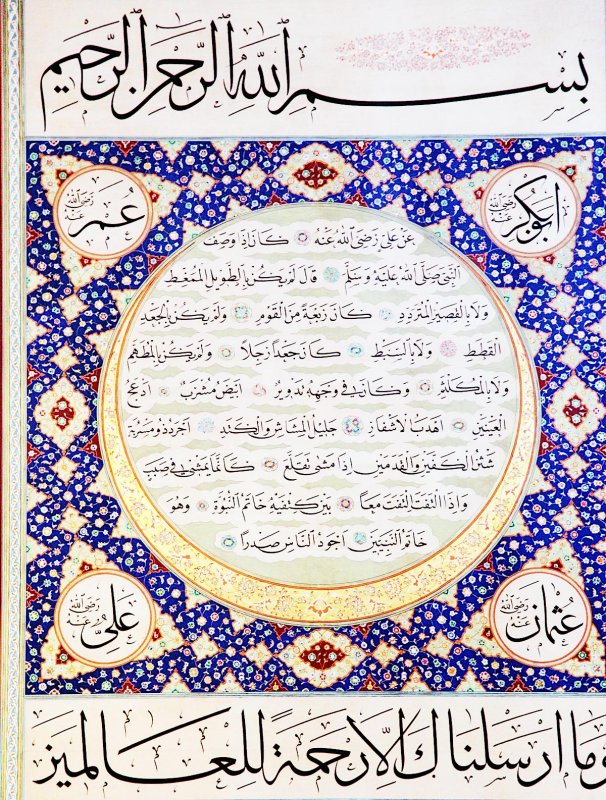 بِسْمِ اللهِ الرَّحْمٰنِ الرَّحِيمِ
ابو بكر رَضِىَ اللهُ عَنْهُ
عُمَر رَضِىَ اللهُ عَنْهُ
عَنْ عَلِىٍّ رَضِىَ اللهُ عَنْهُ كَانَ اِذَا وَصَفَ
النَّبِىَّ صَلَّى اللهُ عَلَيْهِ وَسَلَّمَ قَالَ لَمْ يَكُنْ بِالطَّوِيلِ الْمُمَغَّطِ
وَلَا بِالْقَصِيرِ الْمُتَرَدِّدِ كَانَ رَبْعَةً مِنَ الْقَوْمِ وَلَمْ يَكُنْ بِالْجَعْدِ
الْقَطَطِ وَلَا بِالسَّبِطِ كَانَ جَعْدًا رَجِلًا وَلَمْ يَكُنْ بِالْمُطَهَّمِ
وَلَا بِالْمُكَلْثَمِ وَكَانَ فِى وَجْهِهِ تَدْوِيرٌ اَبْيَضُ مُشْرَبٌ اَدْعَجُ
الْعَيْنَيْنِ اَهْدَبُ الْاَشْفَارِ جَلِيلُ الْمُشَاشِ وَالْكَتَدِ اَجْرَدُ ذُو مَسْرُبَةٍ
شَثْنُ الْكَفَّيْنِ وَالْقَدَمَيْنِ اِذَا مَشٰى تَقَلَّعَ كَاَنَّمَا يَمْشِى فِى صَبَبٍ
وَاِذَا الْتَفَتَ الْتَفَتَ مَعًا بَيْنَ كَتِفَيْهِ خَاتَمُ النُّبُوَّةِ وَهُوَ
خَاتَمُ النَّبِيِّينَ اَجْوَدُ النَّاسِ صَدْرًا
عُثْمَان رَضِىَ اللهُ عَنْهُ
عَلِىّ رَضِىَ اللهُ عَنْهُ
وما ارسلناك الا رحمة للعالمين